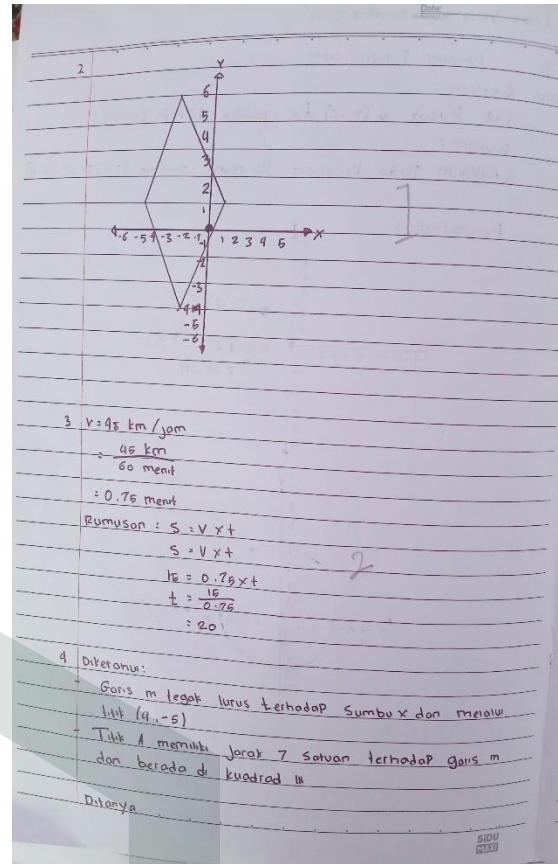 Date:
2
Y
6
5
4
3
2
1
-6 -5 4 -3 -2 -1 1 2 3 4 5 X
-1
-2
-3
-4
-5
-6
1
3 V = 45 km / jam
= 45 km
60 menit
= 0.75 menit
Rumusan : S = V x t
S = V x t
15 = 0.75 x t
t = 15
0.75
= 20
2
4 Diketahui:
- Garis m tegak lurus terhadap sumbu x dan melalui
titik (4, -5)
- Titik A memiliki jarak 7 satuan terhadap garis m
dan berada di kuadrad III
Ditanya
SIDU
MAXI